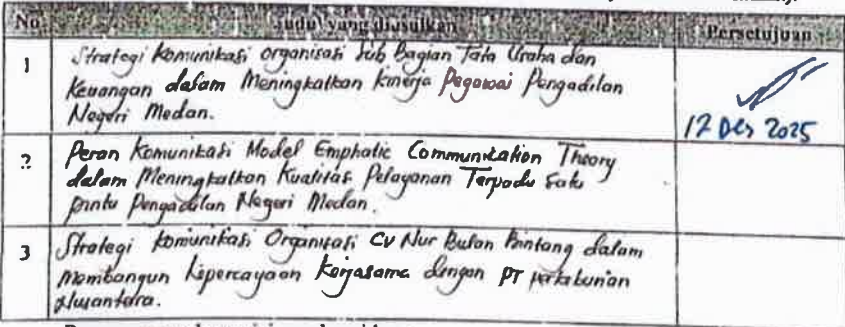 No Judul yang diusulkan Persetujuan
1 Strategi Komunikasi organisasi Sub Bagian Tata Usaha dan
Keuangan dalam Meningkatkan Kinerja Pegawai Pengadilan
Negeri Medan.
12 Des 2025
2 Peran Komunikasi Model Emphatic Communication Theory
dalam Meningkatkan Kualitas Pelayanan Terpadu Satu
pintu Pengadilan Negeri Medan.
3 Strategi Komunikasi Organisasi CV Nur Bulan Bintang dalam
Membangun Kepercayaan Kerjasama dengan PT perkebunan
Nusantara.